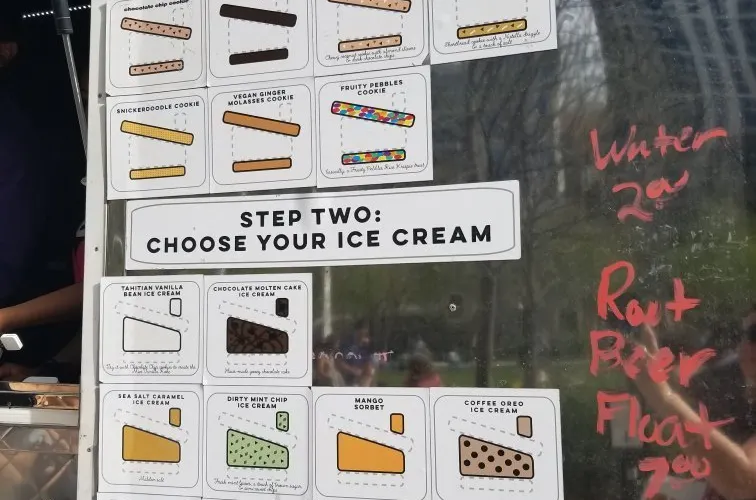 chocolate chip cookie
Chewy oatmeal cookie with almond slivers
& dark chocolate chips
Shortbread cookie with a Nutella drizzle
& a touch of salt
SNICKERDOODLE COOKIE
VEGAN GINGER
MOLASSES COOKIE
FRUITY PEBBLES
COOKIE
Basically a Fruity Pebbles Rice Krispie treat
STEP TWO:
CHOOSE YOUR ICE CREAM
Water
2.00
Root
Beer
Float
7.00
TAHITIAN VANILLA
BEAN ICE CREAM
CHOCOLATE MOLTEN CAKE
ICE CREAM
Made with gooey chocolate cake
SEA SALT CARAMEL
ICE CREAM
DIRTY MINT CHIP
ICE CREAM
Fresh mint leaves, a touch of brown sugar
MANGO
SORBET
COFFEE OREO
ICE CREAM